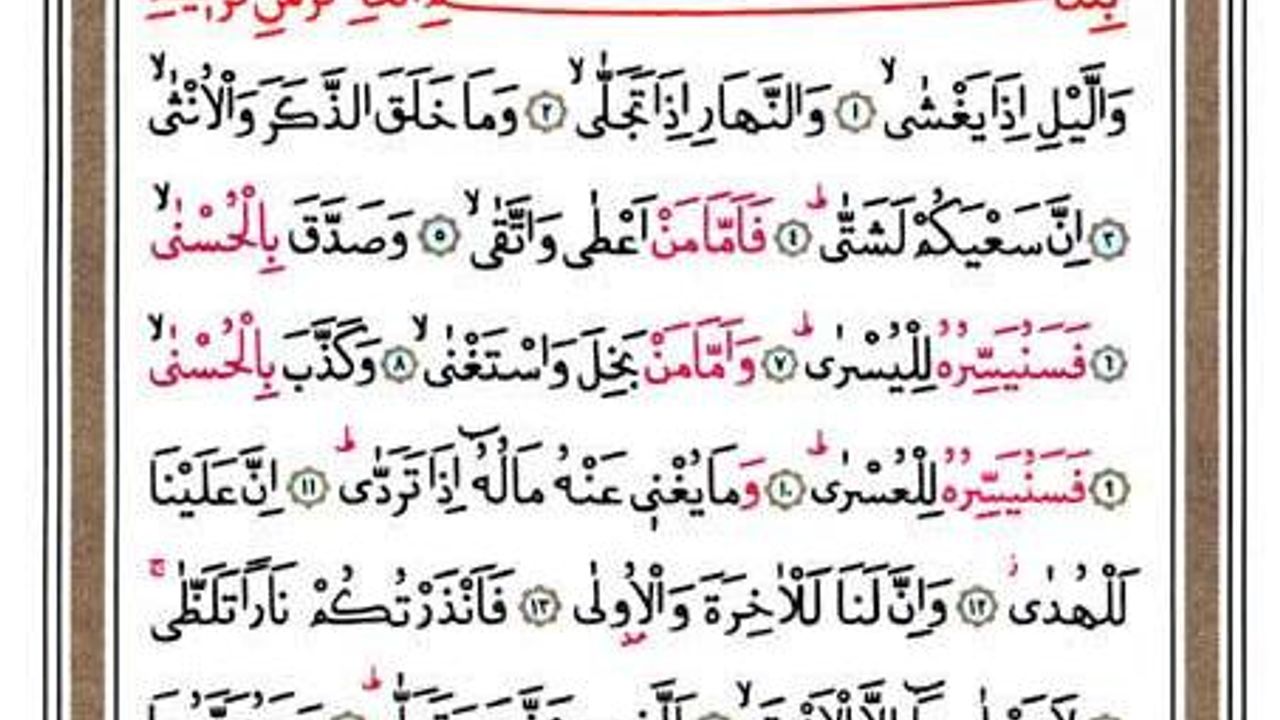 وَالَّيْلِ اِذَا يَغْشٰىۙ ﴿١﴾ وَالنَّهَارِ اِذَا تَجَلّٰىۙ ﴿٢﴾ وَمَا خَلَقَ الذَّكَرَ وَالْاُنْثٰىۙ
﴿٣﴾ اِنَّ سَعْيَكُمْ لَشَتّٰىۜ ﴿٤﴾ فَاَمَّا مَنْ اَعْطٰى وَاتَّقٰىۙ ﴿٥﴾ وَصَدَّقَ بِالْحُسْنٰىۙ
﴿٦﴾ فَسَنُيَسِّرُهُ لِلْيُسْرٰىۜ ﴿٧﴾ وَاَمَّا مَنْ بَخِلَ وَاسْتَغْنٰىۙ ﴿٨﴾ وَكَذَّبَ بِالْحُسْنٰىۙ
﴿٩﴾ فَسَنُيَسِّرُهُ لِلْعُسْرٰىۜ ﴿١٠﴾ وَمَا يُغْنٖي عَنْهُ مَالُهُٓ اِذَا تَرَدّٰىۜ ﴿١١﴾ اِنَّ عَلَيْنَا
لَلْهُدٰىؗ ﴿١٢﴾ وَاِنَّ لَنَا لَلْاٰخِرَةَ وَالْاُو۫لٰى ﴿١٣﴾ فَاَنْذَرْتُكُمْ نَارًا تَلَظّٰىۚ